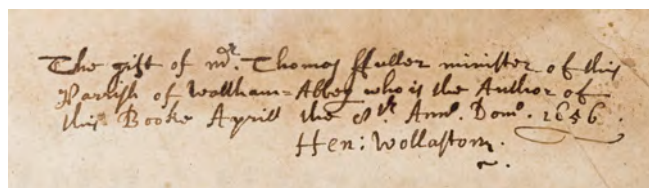 The gift of mr. Thomas ffuller minister of this
Parrish of Waltham=Abbey who is the Author of
this Booke Aprill the 8th. Anno. Domo. 1656.
Hen: Wollaston.